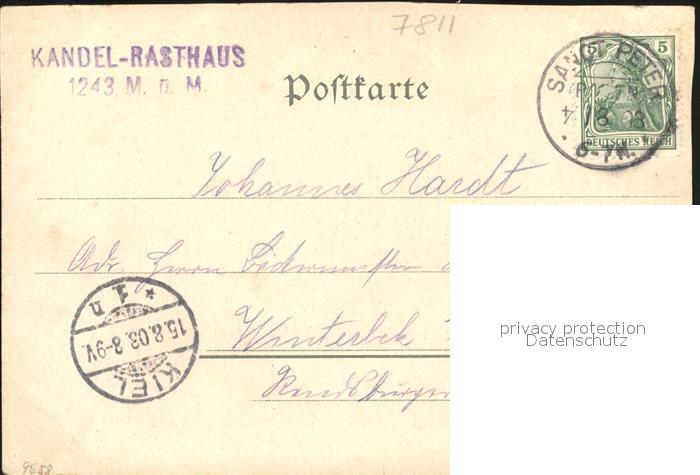 7811
KANDEL-RASTHAUS
1243 M. ü. M.
Postkarte
5 5
SANCT PETER
8 03
6-7N.
DEUTSCHES REICH
Johannes Hardt
Adr. Herrn
Winterbek
Rendsburger
* 1 n
15.8.03.8-9V.
KIEL
privacy protection
Datenschutz
9658